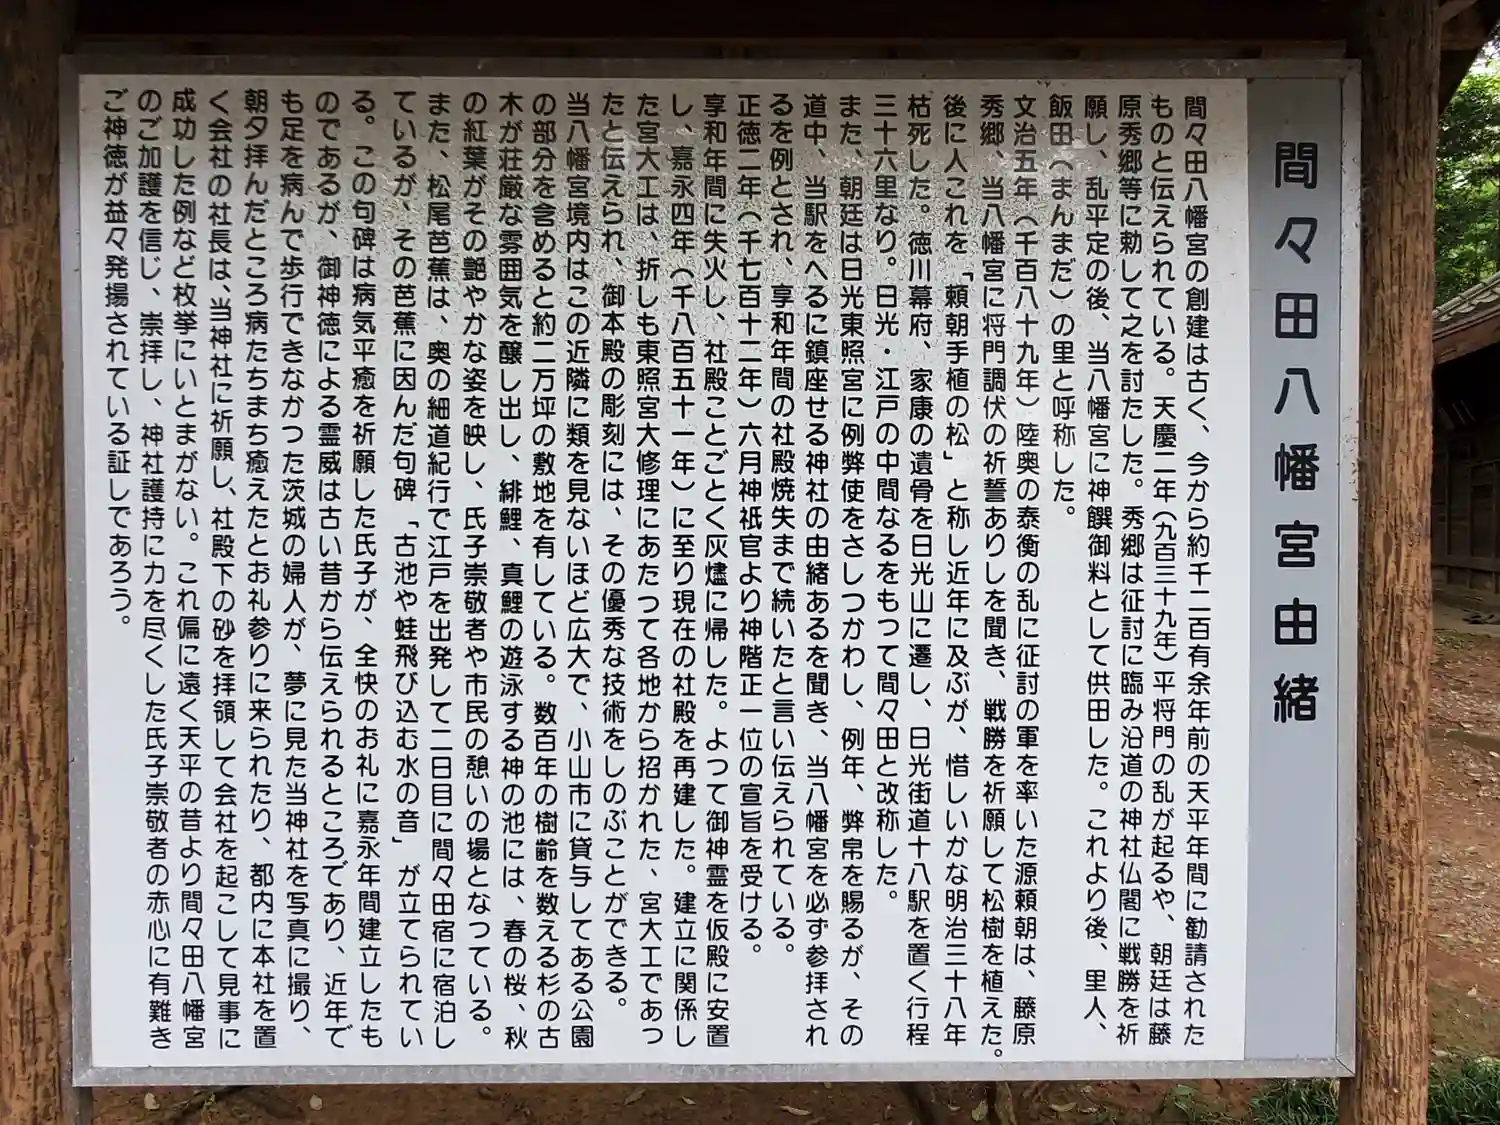 間々田八幡宮由緒
間々田八幡宮の創建は古く、今から約千二百有余年前の天平年間に勧請された
ものと伝えられている。天慶二年（九百三十九年）平将門の乱が起るや、朝廷は藤
原秀郷等に勅して之を討たした。秀郷は征討に臨み沿道の神社仏閣に戦勝を祈
願し、乱平定の後、当八幡宮に神饌御料として供田した。これより後、里人、
飯田（まんまだ）の里と呼称した。
文治五年（千百八十九年）陸奥の泰衡の乱に征討の軍を率いた源頼朝は、藤原
秀郷、当八幡宮に将門調伏の祈誓ありしを聞き、戦勝を祈願して松樹を植えた。
後に人これを「頼朝手植の松」と称し近年に及ぶが、惜しいかな明治三十八年
枯死した。徳川幕府、家康の遺骨を日光山に遷し、日光街道十八駅を置く行程
三十六里なり。日光・江戸の中間なるをもつて間々田と改称した。
また、朝廷は日光東照宮に例弊使をさしつかわし、例年、弊帛を賜るが、その
道中、当駅をへるに鎮座せる神社の由緒あるを聞き、当八幡宮を必ず参拝され
るを例とされ、享和年間の社殿焼失まで続いたと言い伝えられている。
正徳二年（千七百十二年）六月神祇官より神階正一位の宣旨を受ける。
享和年間に失火し、社殿ことごとく灰燼に帰した。よつて御神霊を仮殿に安置
し、嘉永四年（千八百五十一年）に至り現在の社殿を再建した。建立に関係し
た宮大工は、折しも東照宮大修理にあたつて各地から招かれた、宮大工であっ
たと伝えられ、御本殿の彫刻には、その優秀な技術をしのぶことができる。
当八幡宮境内はこの近隣に類を見ないほど広大で、小山市に貸与してある公園
の部分を含めると約二万坪の敷地を有している。数百年の樹齢を数える杉の古
木が荘厳な雰囲気を醸し出し、緋鯉、真鯉の遊泳する神の池には、春の桜、秋
の紅葉がその艶やかな姿を映し、氏子崇敬者や市民の憩いの場となつている。
また、松尾芭蕉は、奥の細道紀行で江戸を出発して二日目に間々田宿に宿泊し
ているが、その芭蕉に因んだ句碑「古池や蛙飛び込む水の音」が立てられてい
る。この句碑は病気平癒を祈願した氏子が、全快のお礼に嘉永年間建立したも
のであるが、御神徳による霊威は古い昔から伝えられるところであり、近年で
も足を病んで歩行できなかつた茨城の婦人が、夢に見た当神社を写真に撮り、
朝夕拝んだところ病たちまち癒えたとお礼参りに来られたり、都内に本社を置
く会社の社長は、当神社に祈願し、社殿下の砂を拝領して会社を起こして見事に
成功した例など枚挙にいとまがない。これ偏に遠く天平の昔より間々田八幡宮
のご加護を信じ、崇拝し、神社護持に力を尽くした氏子崇敬者の赤心に有難き
ご神徳が益々発揚されている証しであろう。